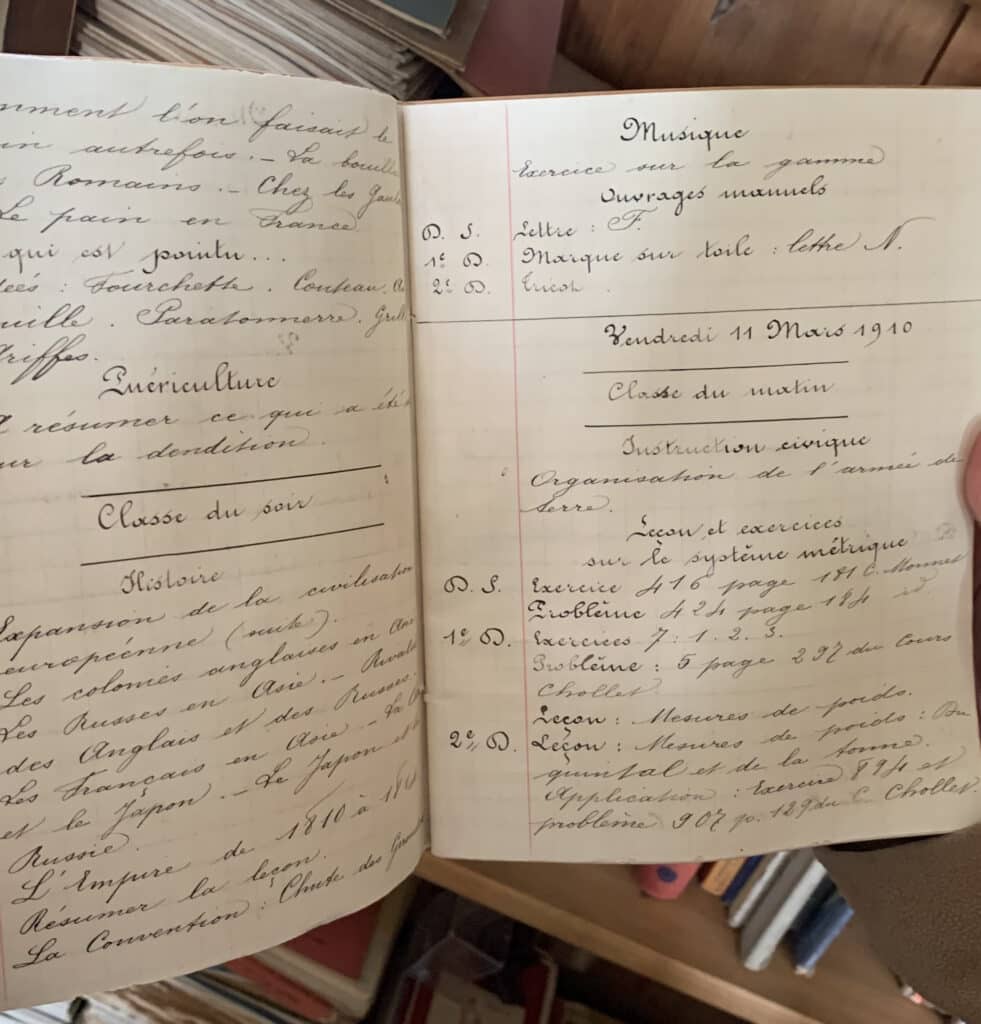 mment l'on faisait le
in autrefois. - La bouill
s Romains. - Chez les Gaul
Le pain en France
qui est pointu...
ées : Fourchette. Couteau.
uille. Paratonnerre. Gri
riffes.
Puériculture
résumer ce qui a été
ur la dendition.
Classe du soir
Histoire
Expansion de la civilisation
européenne (suite).
Les colonies anglaises en
Les Russes en Asie. - Rivali
des Anglais et des Russes.
Les Français en Asie. - La
et le Japon. - Le Japon et
Russie.
L'Empire de 1810 à 181
Résumer la leçon.
La Convention : Chute des
Musique
Exercice sur la gamme
Ouvrages manuels
D. S. Lettre : F.
1e D. Marque sur toile : lettre N.
2e D. Tricot.
Vendredi 11 Mars 1910
Classe du matin
Instruction civique
Organisation de l'armée de
terre.
Leçon et exercices
sur le système métrique
D. S. Exercice 416 page 181 C. Monnet
Problème 424 page 184 id.
1e D. Exercices 7 : 1. 2. 3.
Problème : 5 page 297 du cours
Chollet.
Leçon : Mesures de poids.
2e D. Leçon : Mesures de poids : Du
quintal et de la tonne.
Application : Exercice 894 et
problème 907 p. 129 du C. Chollet.